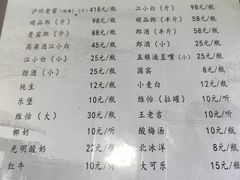 泸州老窖(特曲)(斤) 418元/瓶 江小白(斤) 98元/瓶
顺品郎(斤) 98元/瓶 顺品郎(半) 58元/瓶
贵宾郎(斤) 88元/瓶 郎酒(半斤) 58元/瓶
高粱酒江小白 45元/瓶 郎酒(小) 25元/瓶
江小白(小) 25元/瓶 五粮液至嘴(小) 25元/瓶
劲酒(小) 25元/瓶 国宾 8元/瓶
纯生 12元/瓶 小麦白 12元/瓶
东堡 10元/瓶 维怡(拉罐) 10元/听
维怡(大) 30元/瓶 王老吉 10元/听
椰奶 10元/听 酸梅汤 10元/瓶
光明酸奶 22元/瓶 北冰洋 8元/瓶
红牛 10元/听 大可乐 15元/瓶